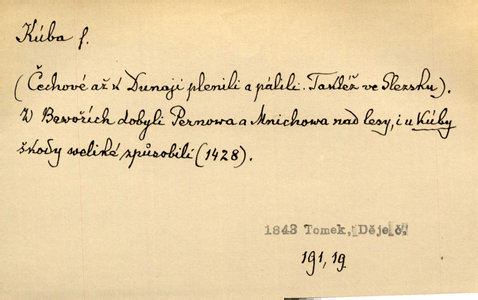 Kúba f.
(Čechové až k Dunaji plenili a pálili. Taktéž ve Slezsku).
V Bavořích dobyli Pernowa a Mnichowa nad lesy, i u Kúby
škody weliké způsobili (1428).
1843 Tomek, Děje č.
191, 19